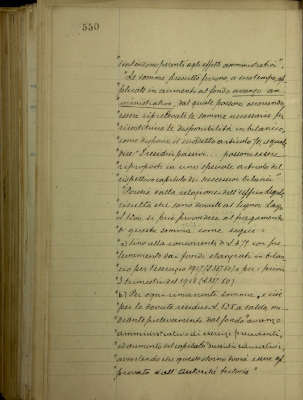 550
"s'intendono perenti agli effetti amministrativi".
"Le somme prescritte furono, a suo tempo, ap-
"plicate in aumento al fondo avanzo am-
"ministrativo, dal quale possono occorrendo
"essere riprelevate le somme necessarie per
"ricostituire le disponibilità in bilancio,
"come dispone il suddetto articolo 70, il quale
"dice "I residui passivi... possono essere
"riproposti in uno speciale articolo del
"rispettivo capitolo dei successivi bilanci"
"Poichè dalla relazione dell'Ufficio Legale
"risulta che sono dovute al Signor
"si può provvedere al pagamento
"di questa somma come segue:
"a) fino alla concorrenza di L. con pre-
"levamento dai fondi stanziati in bilan-
"cio per l'esercizio 1917 e per i primi
"3 trimestri del 1918
"b) Per ogni rimanente somma, e cioè
"per le dovute residue L. me-
"diante prelevamento dal fondo "avanzo
"amministrativo di esercizi precedenti,
"ed aumento del capitolo "residui
"avvertendo che questo storno dovrà essere ap-
"provato dall'Autorità tutoria"